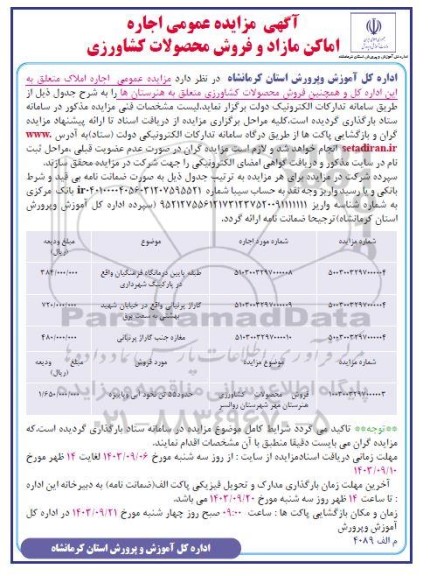 آگهی مزایده عمومی اجاره
اماکن مازاد و فروش محصولات کشاورزی
اداره کل آموزش وپرورش استان کرمانشاه در نظر دارد مزایده عمومی اجاره املاک متعلق به
این اداره کل و همچنین فروش محصولات کشاورزی متعلق به هنرستان ها را به شرح جدول ذیل از
طریق سامانه تدارکات الکترونیک دولت برگزار نماید.لیست مشخصات فنی مزایده مذکور در سامانه
ستاد بارگذاری گردیده است.کلیه مراحل برگزاری مزایده از دریافت اسناد تا ارائه پیشنهاد مزایده
گران و بازگشایی پاکت ها از طریق درگاه سامانه تدارکات الکترونیکی دولت (ستاد)به آدرس www.
setadiran.ir انجام خواهد شد و لازم است مزایده گران در صورت عدم عضویت قبلی ،مراحل ثبت
نام در سایت مذکور و دریافت گواهی امضای الکترونیکی را جهت شرکت در مزایده محقق سازند.
سپرده شرکت در مزایده برای هر مزایده به ترتیب جدول ذیل به صورت ضمانت نامه بی قید و شرط
بانکی و یا رسید واریز وجه نقد به حساب سیبا شماره بانک مرکزی
به شماره شناسه واریز (سپرده اداره کل آموزش وپرورش
استان کرمانشاه)ترجیحا ضمانت نامه ارائه گردد.
شماره مزایده شماره مورد اجاره موضوع مبلغ ودیعه (ریال)
طبقه پایین درمانگاه فرهنگیان واقع در پارکینگ شهرداری ۳۸۴/۰۰۰/۰۰۰
گاراژ پرنیانی واقع در خیابان شهید بهشتی به سمت برق ۷۲۰/۰۰۰/۰۰۰
مغازه جنب گاراژ پرنیانی ۴۸۰/۰۰۰/۰۰۰
شماره مزایده موضوع مزایده مورد فروش مبلغ ودیعه (ریال)
فروش محصولات کشاورزی هنرستان مهر شهرستان روانسر حدود۵۵ تن نخود آبی و پاییزه ۱/۶۵۰/۰۰۰/۰۰۰
**توجه** تاکید می گردد شرایط کامل موضوع مزایده در سامانه ستاد بارگذاری گردیده است.که
مزایده گران می بایست دقیقا منطبق با آن مشخصات اقدام نمایند.
مهلت زمانی دریافت اسنادمزایده از سایت : از روز سه شنبه مورخ ۱۴۰۳/۰۹/۰۶ لغایت ۱۴ ظهر مورخ
۱۴۰۳/۰۹/۱۰
آخرین مهلت زمان بارگذاری مدارک و تحویل فیزیکی پاکت الف(ضمانت نامه) به دبیرخانه این اداره
: تا ساعت ۱۴ ظهر روز سه شنبه مورخ ۱۴۰۳/۰۹/۲۰ می باشد.
زمان و مکان بازگشایی پاکت ها : ساعت ۰۹:۰۰ صبح روز چهار شنبه مورخ ۱۴۰۳/۰۹/۲۱ در اداره کل
آموزش وپرورش
م الف ۴۰۸۹
اداره کل آموزش و پرورش استان کرمانشاه
ParsNamadData
۰۲۱-۸۸۳۴۹۶۷۰-۵